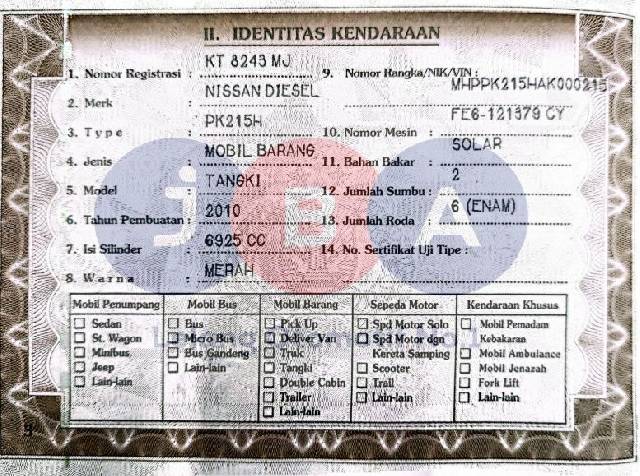 II. IDENTITAS KENDARAAN
1. Nomor Registrasi : KT 8243 MJ
2. Merk : NISSAN DIESEL
3. Type : PK215H
4. Jenis : MOBIL BARANG
5. Model : TANGKI
6. Tahun Pembuatan : 2010
7. Isi Silinder : 6925 CC
8. Warna : MERAH
9. Nomor Rangka/NIK/VIN : MHPPK215HAK000215
10. Nomor Mesin : FE6-121379 CY
11. Bahan Bakar : SOLAR
12. Jumlah Sumbu : 2
13. Jumlah Roda : 6 (ENAM)
14. No. Sertifikat Uji Tipe :
JBA
Mobil Penumpang
Sedan
St. Wagon
Minibus
Jeep
Lain-lain
Mobil Bus
Bus
Micro Bus
Bus Gandeng
Lain-lain
Mobil Barang
Pick Up
Deliver Van
Truk
Tangki
Double Cabin
Trailer
Lain-lain
Sepeda Motor
Spd Motor Solo
Spd Motor dgn
Kereta Samping
Scooter
Trail
Lain-lain
Kendaraan Khusus
Mobil Pemadam
Kebakaran
Mobil Ambulance
Mobil Jenazah
Fork Lift
Lain-lain